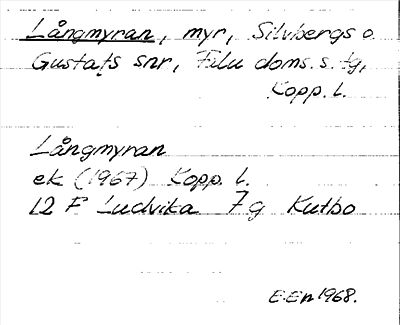 Långmyran, myr, Silvbergs o.
Gustafs snr, Falu doms. s. tg,
Kopp. l.
Långmyran
ek (1967) Kopp. l.
12 F Ludvika 7 g Kutbo
E. En 1968.